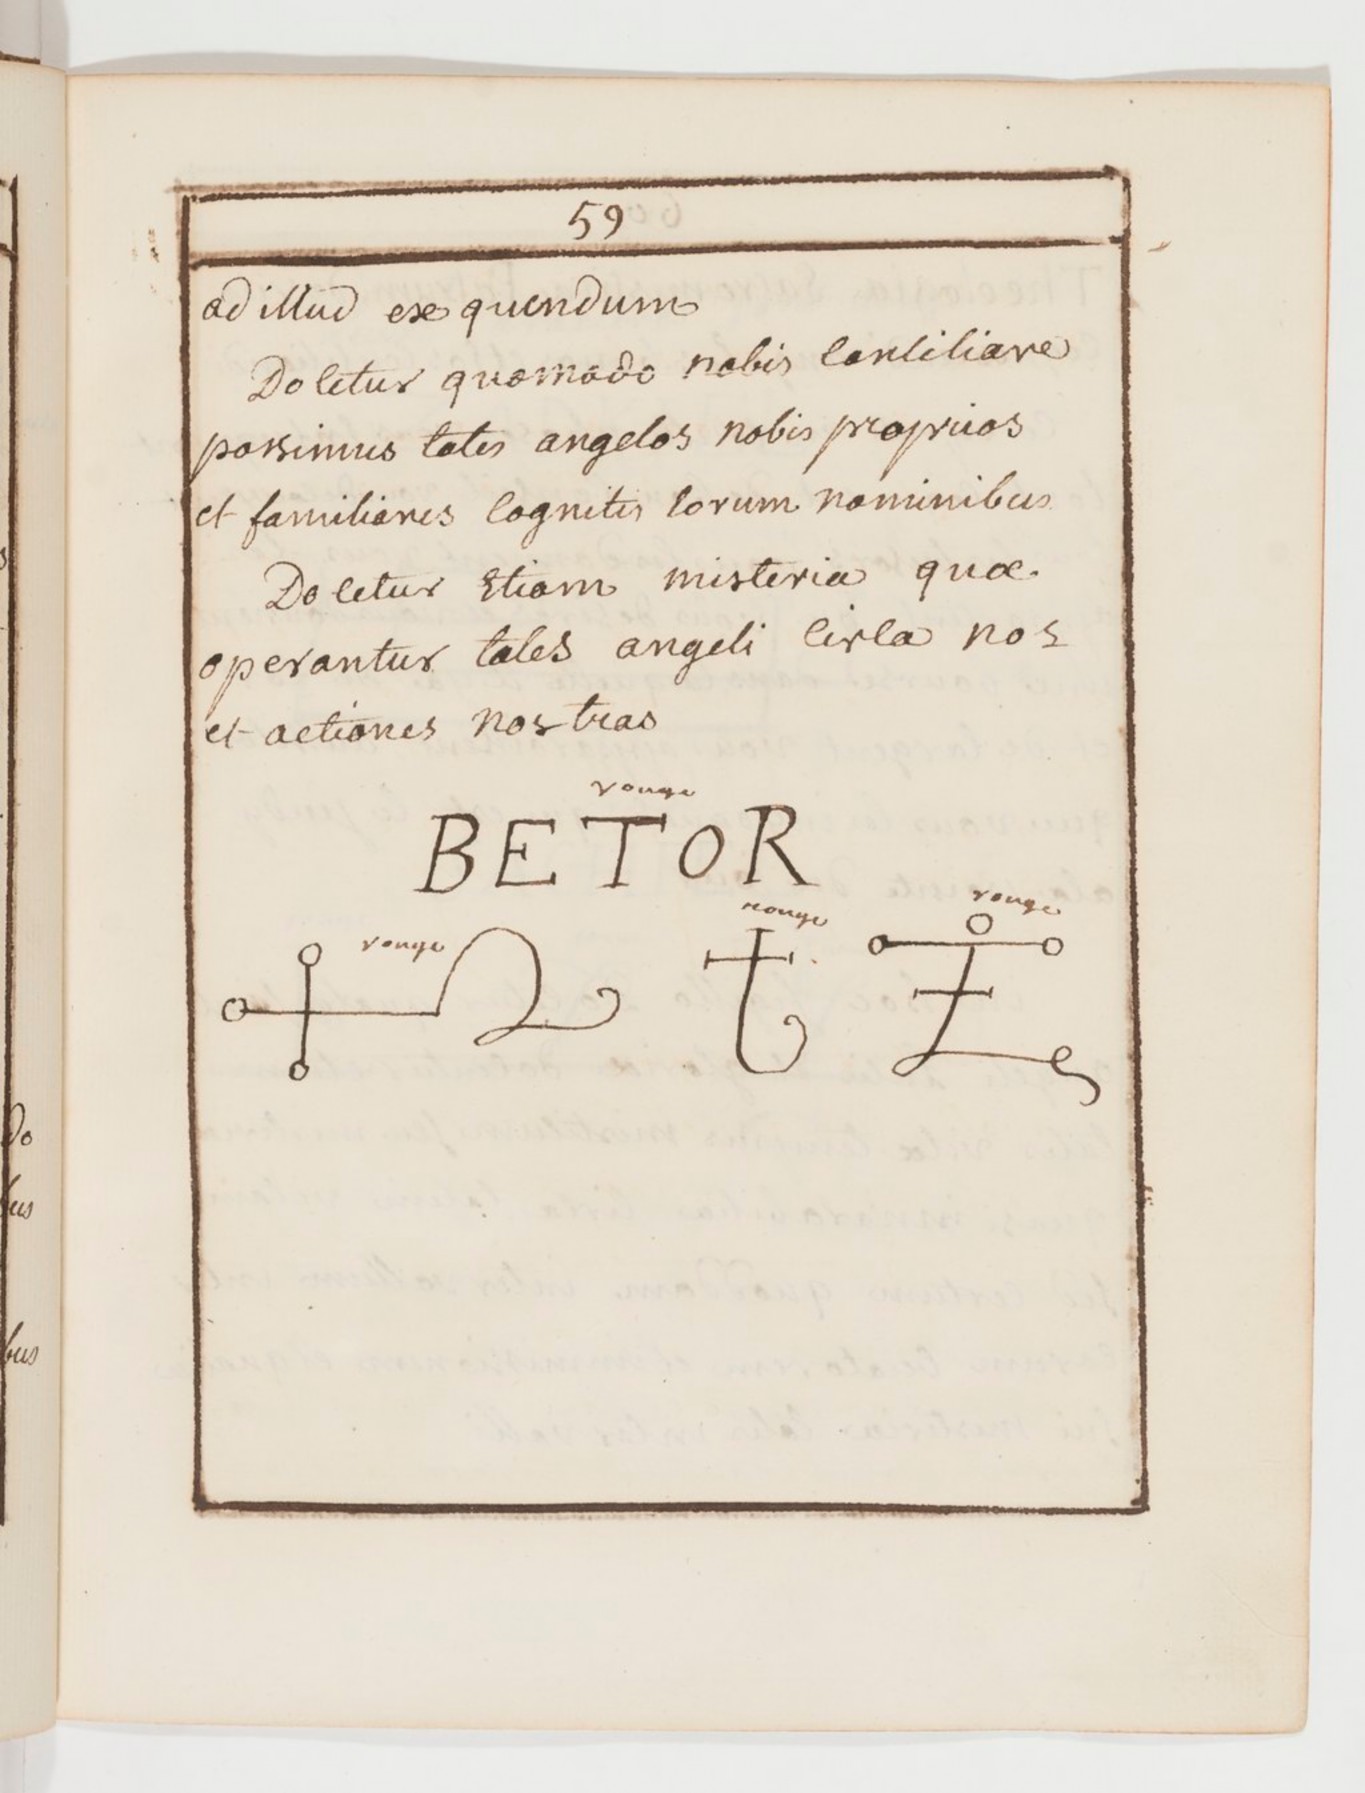 59
ad illud exequendum
Docetur quomodo nobis conciliare
possimus tales angelos nobis proprios
et familiares cognitis eorum nominibus
Docetur Etiam misteria quæ
operantur tales angeli circa nos
et actiones nostras
rouge
BETOR
rouge rouge rouge
do
bus